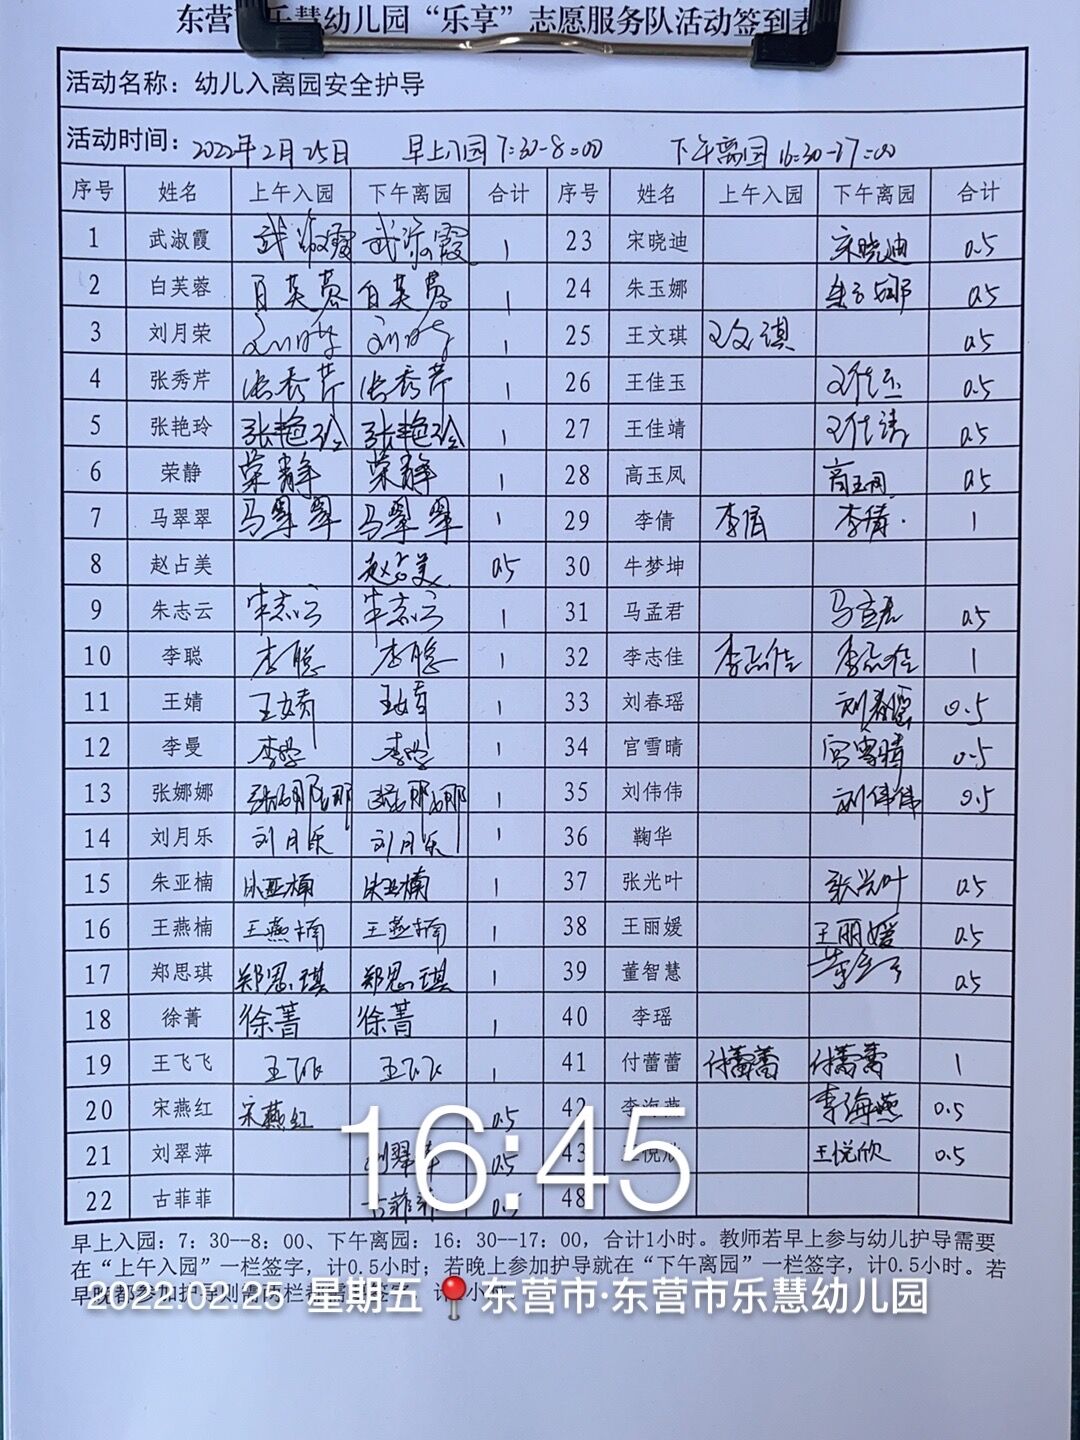 东营 乐慧幼儿园“乐享”志愿服务队活动签到表
活动名称：幼儿入离园安全护导
活动时间：2022年2月25日 早上入园7:30-8:00 下午离园16:30-17:00
序号 姓名 上午入园 下午离园 合计 序号 姓名 上午入园 下午离园 合计
1 武淑霞 武淑霞 武淑霞 1 23 宋晓迪 宋晓迪 0.5
2 白芙蓉 白芙蓉 白芙蓉 1 24 朱玉娜 朱玉娜 0.5
3 刘月荣 刘月荣 刘月荣 1 25 王文琪 王文琪 0.5
4 张秀芹 张秀芹 张秀芹 1 26 王佳玉 王佳玉 0.5
5 张艳玲 张艳玲 张艳玲 1 27 王佳靖 王佳靖 0.5
6 荣静 荣静 荣静 1 28 高玉凤 高玉凤 0.5
7 马翠翠 马翠翠 马翠翠 1 29 李倩 李倩 李倩 1
8 赵占美 赵占美 0.5 30 牛梦坤
9 朱志云 朱志云 朱志云 1 31 马孟君 马孟君 0.5
10 李聪 李聪 李聪 1 32 李志佳 李志佳 李志佳 1
11 王婧 王婧 王婧 1 33 刘春瑶 刘春瑶 0.5
12 李曼 李曼 李曼 1 34 官雪晴 官雪晴 0.5
13 张娜娜 张娜娜 张娜娜 1 35 刘伟伟 刘伟伟 0.5
14 刘月乐 刘月乐 刘月乐 1 36 鞠华
15 朱亚楠 朱亚楠 朱亚楠 1 37 张光叶 张光叶 0.5
16 王燕楠 王燕楠 王燕楠 1 38 王丽媛 王丽媛 0.5
17 郑思琪 郑思琪 郑思琪 1 39 董智慧 0.5
18 徐菁 徐菁 徐菁 1 40 李瑶
19 王飞飞 王飞飞 王飞飞 1 41 付蕾蕾 付蕾蕾 付蕾蕾 1
20 宋燕红 宋燕红 0.5 42 李海燕 李海燕 0.5
21 刘翠萍 刘翠萍 0.5 43 王悦欣 王悦欣 0.5
22 古菲菲 古菲菲 0.5 48
16:45
早上入园：7：30--8：00、下午离园：16：30--17：00，合计1小时。教师若早上参与幼儿护导需要
在“上午入园”一栏签字，计0.5小时；若晚上参加护导就在“下午离园”一栏签字，计0.5小时。若
早晚都参加护导则需两栏都
2022.02.25 星期五 东营市·东营市乐慧幼儿园